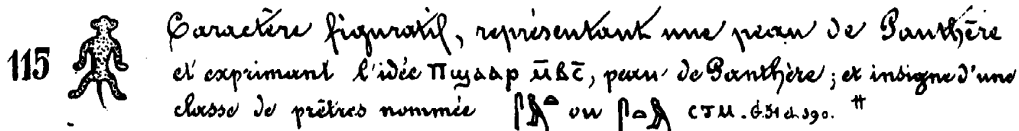 Caractère figuratif, représentant une peau de Panthère
115
et exprimant l'idée Ⲡⲱⲁⲁⲣ ⲛ̄ⲃⲥ̄, peau de Panthère; et insigne d'une
classe de prêtres nommée ou ⲥⲧⲙ. G.